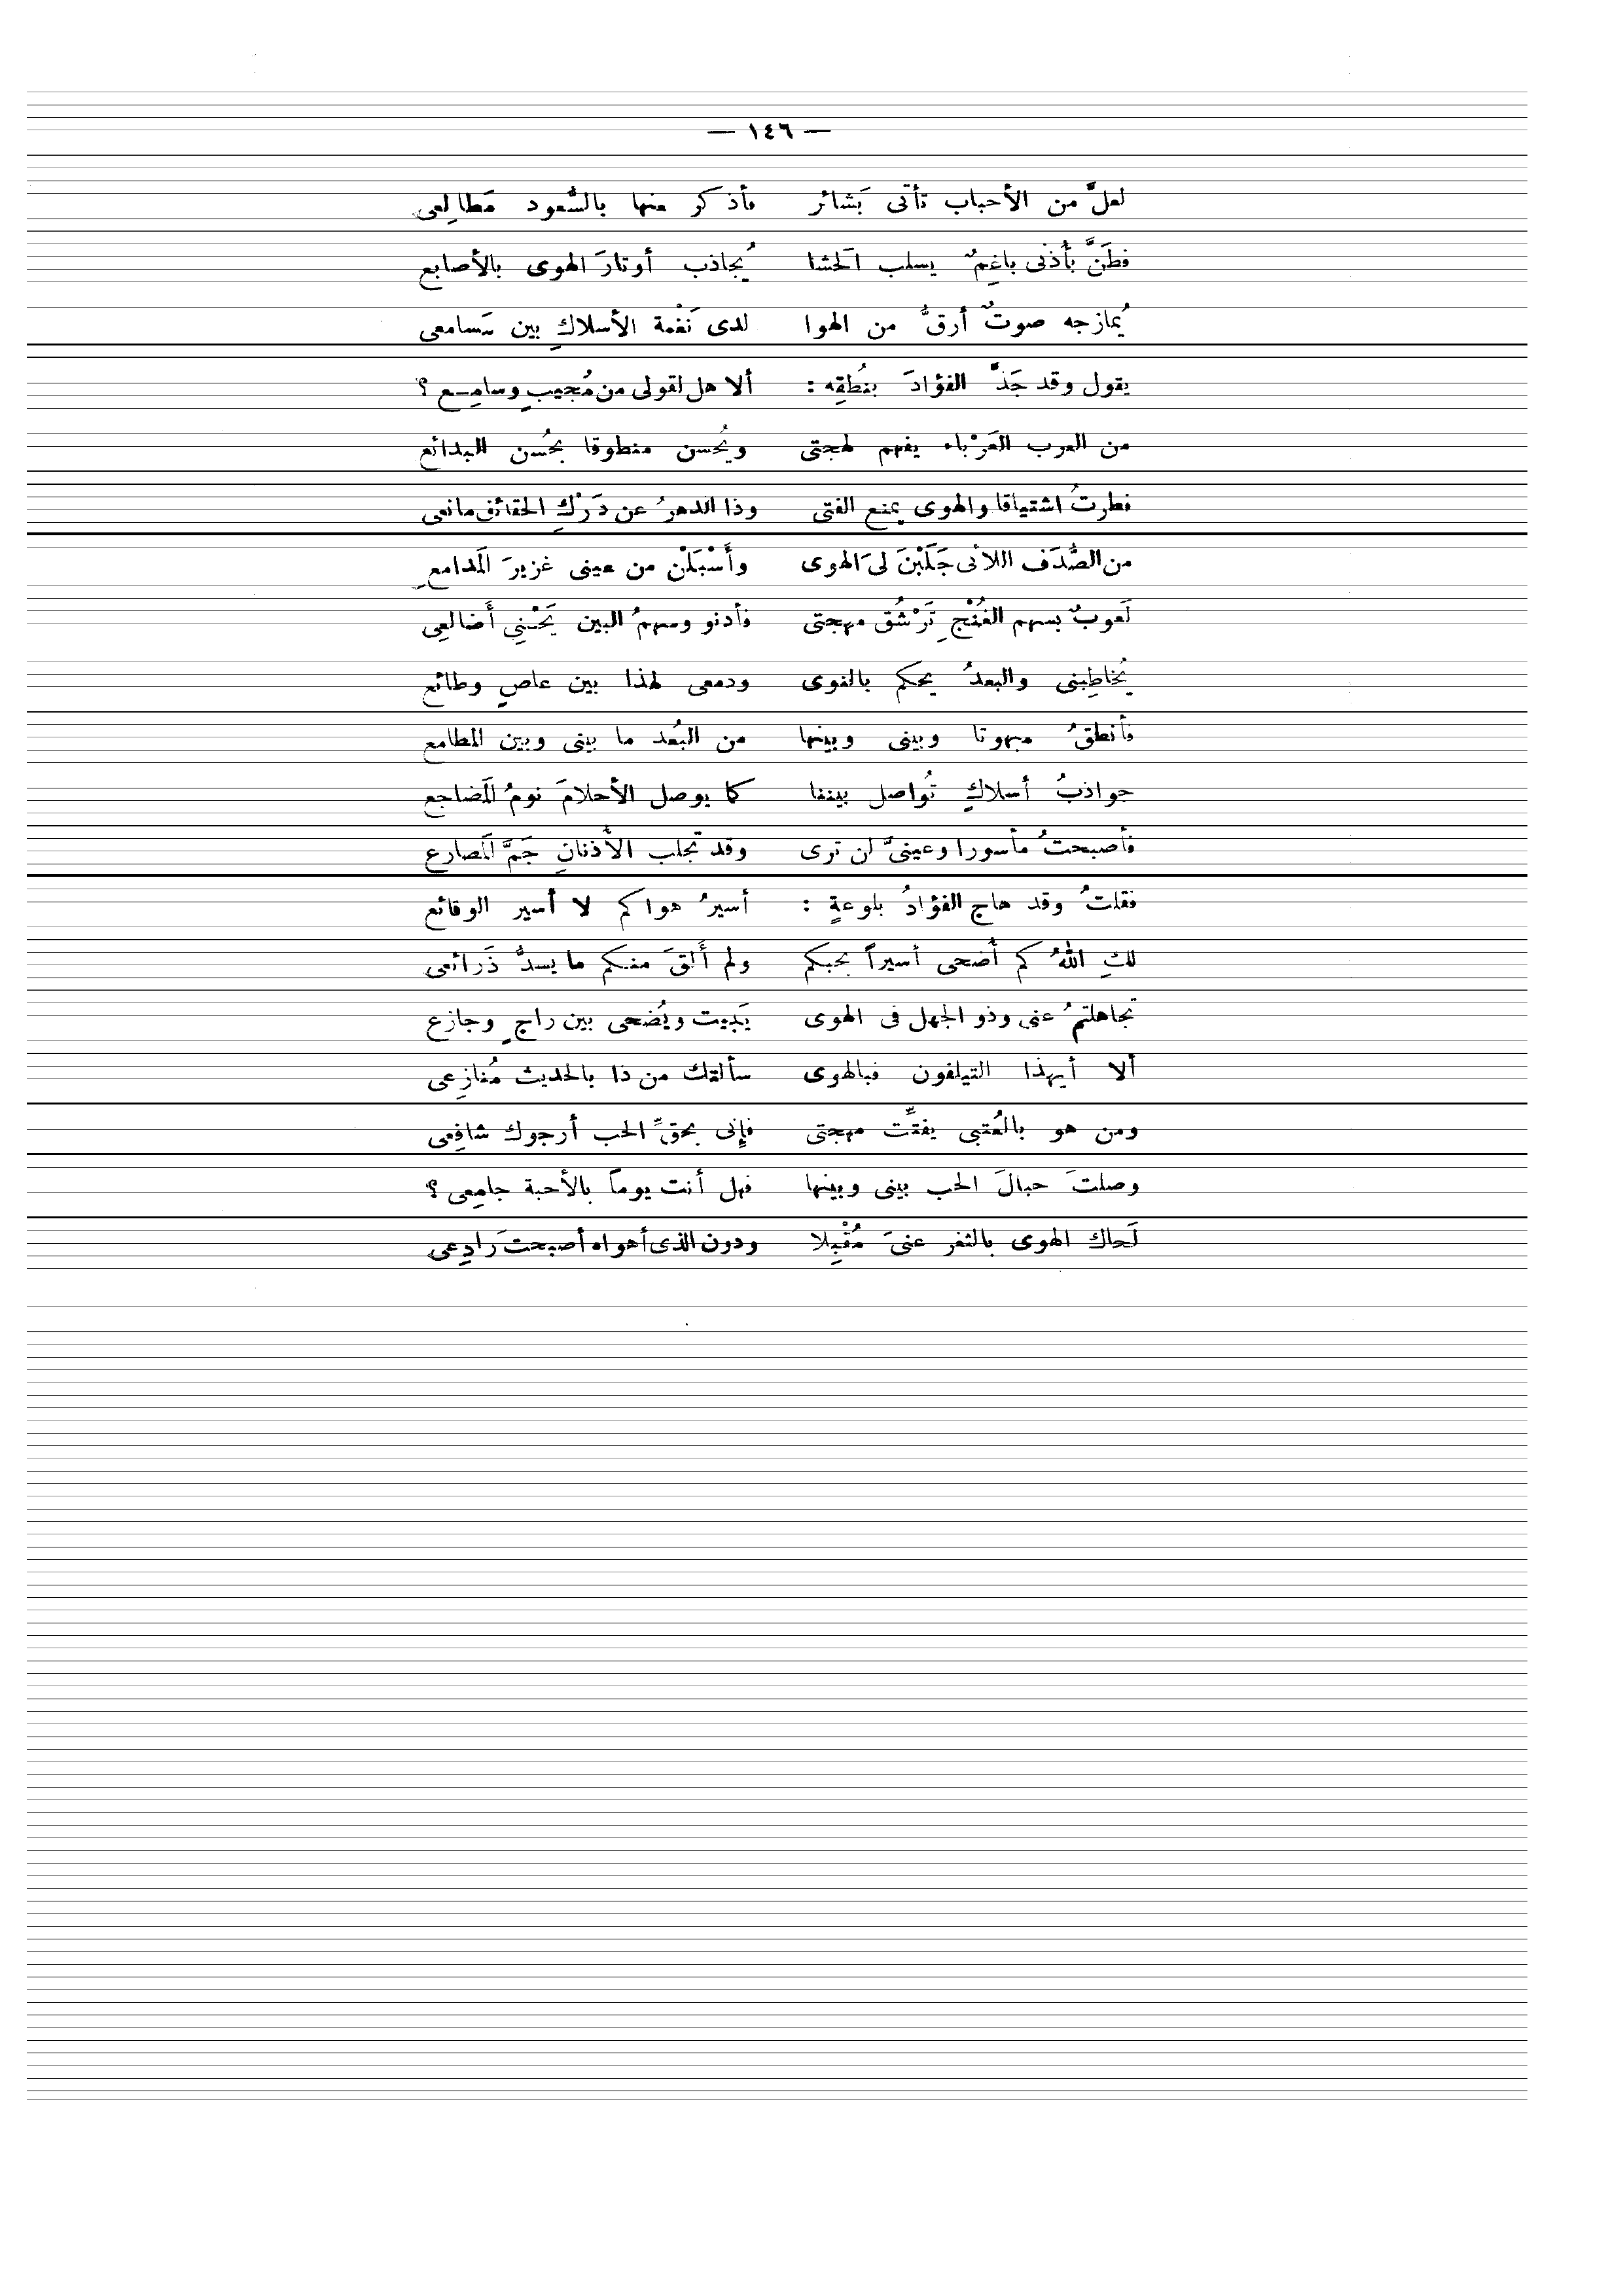 — ١٤٦ —
لعلَّ من الأحباب تأتى بَشائر فأذكر منها بالسُّعود مَطالِعى
فطَنَّ بأُذنى باغِمٌ يسلب الَحشا يُجاذب أوتارَ الهوى بالأصابع
يُمازجه صوتٌ أرقُّ من الهوا لدى نَغْمة الأسلاكِ بين مَسامعى
يقول وقد جَذَّ الفؤادَ بنُطقِه : ألا هل لقولى من مُجيبٍ وسامِـع ؟
من العرب العَرْباء يفهم لهجتى ويُحسن منطوقا بحُسن البدائع
فطرتُ اشتياقا والهوى يمنع الفتى وذا الدهرُ عن دَرْكِ الحقائق مانعى
من الصُّدَف اللائى جَلَبْنَ لىَ الهوى وأَسْبَلْن من عينى غزيرَ الَمدامعِ
لَعوبٌ بسهم الغُنْجِ تَرْشُق مهجتى فأدنو وسهمُ البين يَحْنِى أَضالعِى
يُخاطِبنى والبعدُ يحكم بالنوى ودمعى لهذا بين عاصٍ وطائع
فأنطقُ مبهوتا وبينى وبينها من البُعد ما بينى وبين المطامع
جواذبُ أسلاكٍ تُواصل بيننا كما يوصل الأحلامَ نومُ الَمضاجع
فأصبحتُ مأسورا وعينىَّ لن ترى وقد تجلب الأُذنانِ جَمَّ الَمصارع
فقلتُ وقد هاج الفؤادُ بلوعةٍ : أسيرُ هواكم لا أسير الوقائع
لكِ اللهُ كم أُضحى أسيراً بحبكم ولم أَلقَ منكم ما يسدُّ ذَرائعى
تجاهلتمُ عنى وذو الجهل فى الهوى يَبيت ويُضحى بين راجٍ وجازع
ألا أيهذا التيلفون فبالهوى سألتك من ذا بالحديث مُنازِعى
ومن هو بالعُتبى يفتِّت مهجتى فإنى بحقِّ الحب أرجوك شافِعى
وصلتَ حبالَ الحب بينى وبينها فهل أنت يوماً بالأحبة جامِعى ؟
لَحاك الهوى بالثغر عنىَ مُقْبِلا ودون الذى أهواه أصبحتَ رادِعى